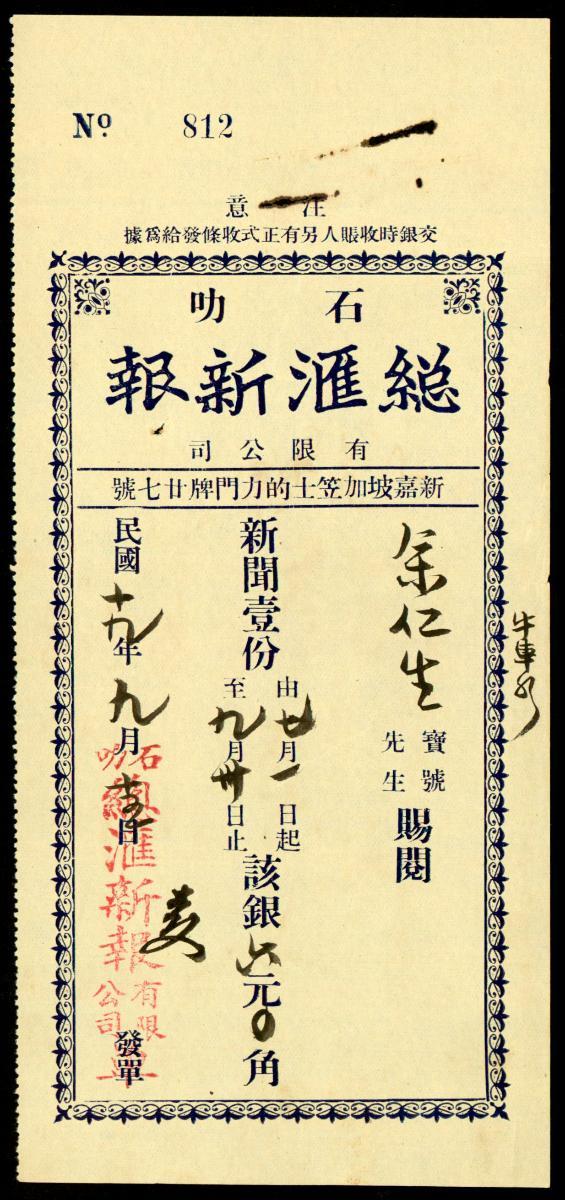 Nº 812
注意
交銀時收賬人另有正式收條發給爲據
石叻
総滙新報
有限公司
新嘉坡加笠士的力門牌廿七號
牛車水
余仁生 寶號 先生 賜閱
新聞壹份 由七月一日起 至九月卅日止 該銀六元0角
民國十九年九月 日 發單
石叻
總滙新報
有限公司
單